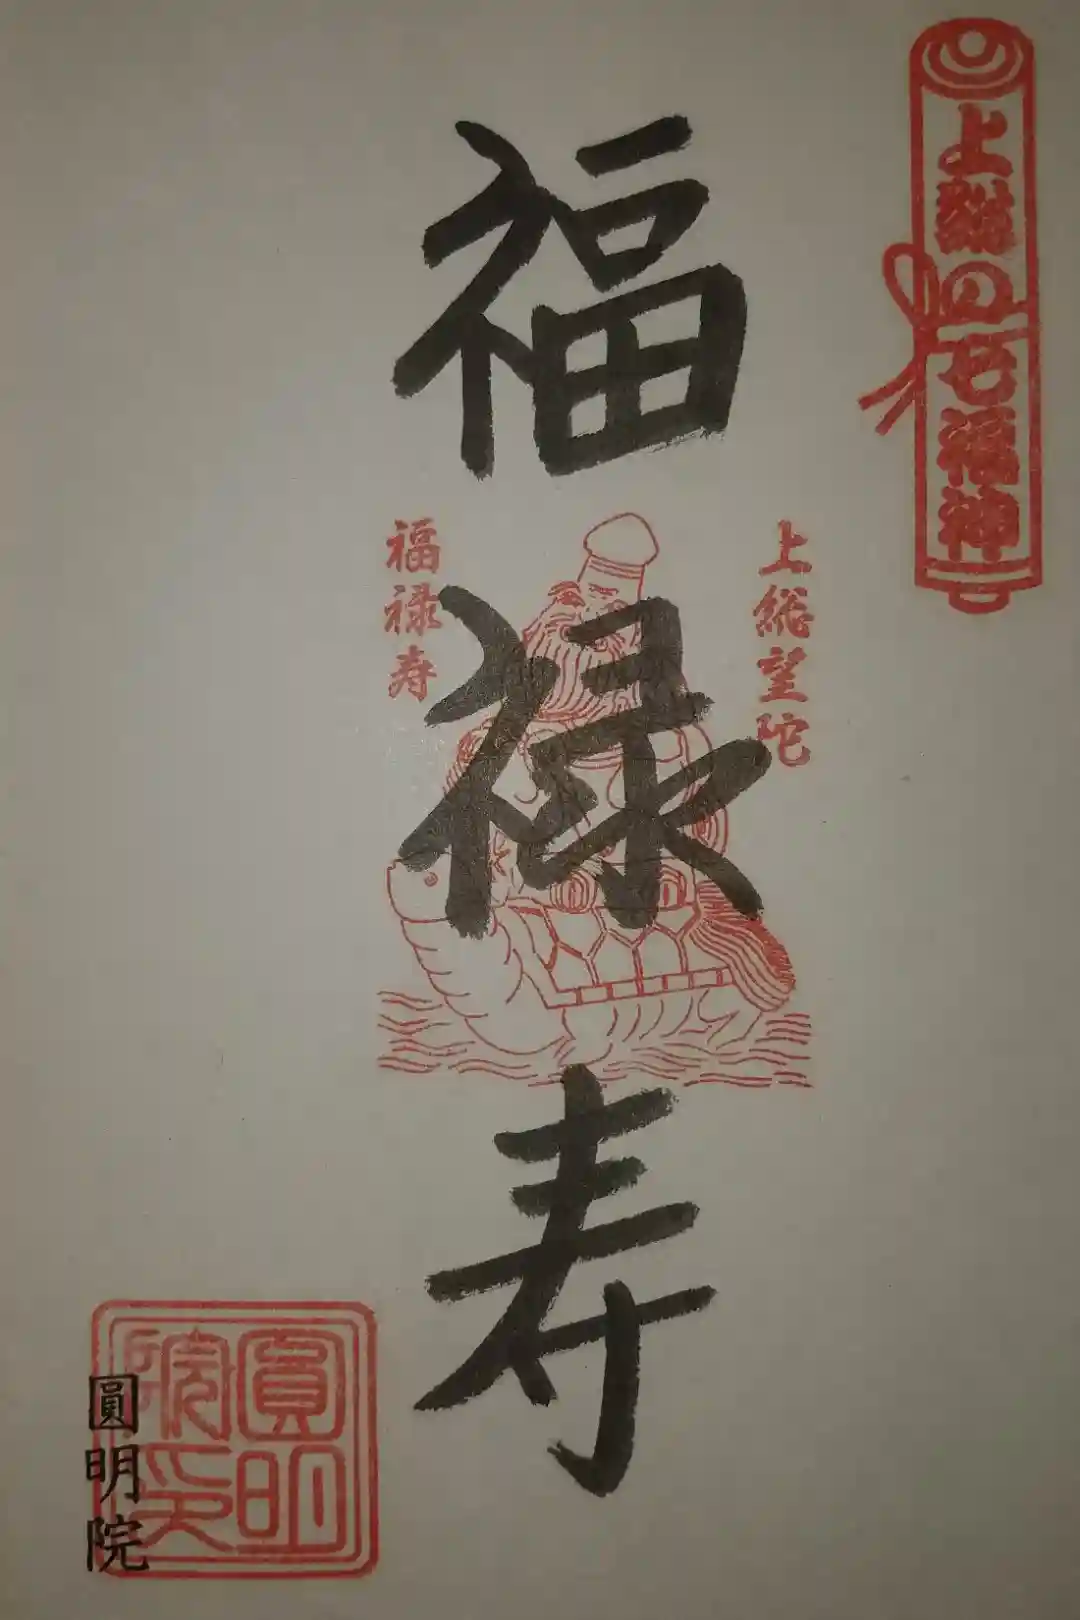 上総の七福神
上総望陀
福禄寿
福禄寿
圓明院印
圓明院